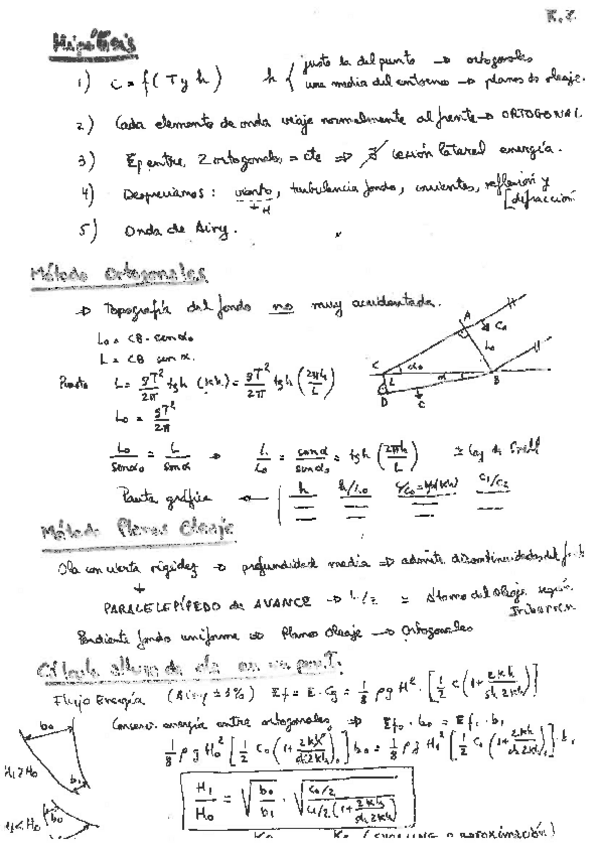 Hipótesis
1) C = f( T y h ) h { justo la del punto → ortogonales
una media del entorno → planos de oleaje.
2) Cada elemento de onda viaje normalmente al frente → ORTOGONAL
3) Ep entre 2 ortogonales = cte ⇒ ∄ cesión lateral energía.
4) Despreciamos: viento, turbulencia fondo, corrientes, reflexión y
[difracción
↓ H
5) Onda de Airy.
Método Ortogonales
⇒ Topografía del fondo no muy accidentada.
L₀ = CB · sen α₀
L = CB sen α.
A
C₀
L₀
C
α₀
α
B
L
D
C
Puesto L = gT²/2π tgh (kh) = gT²/2π tgh (2πh/L)
L₀ = gT²/2π
L₀/sen α₀ = L/sen α ⇒ L/L₀ = sen α/sen α₀ = tgh (2πh/L) ≃ Ley de Snell
Pauta gráfica ← | h h/L₀ C/C₀ = tgh(kh) C₁/C₂
Método Planos Oleaje
Ola con cierta rigidez → profundidad media ⇒ admite discontinuidades del
↓
PARALELEPÍPEDO de AVANCE → L/2 = Átomo del Oleaje según
Iribarren
Pendiente fondo uniforme ⇒ Planos Oleaje → Ortogonales
Cálculo altura de ola en un punto
Flujo Energía (Airy ± 3%) Ef = E · Cg = 1/8 ρ g H² · [1/2 C (1 + 2kh/sh 2kh)]
b₀
Conserv. energía entre ortogonales ⇒ Ef₀ · b₀ = Ef₁ · b₁
1/8 ρ g H₀² [1/2 C₀ (1 + 2kh/sh 2kh)₀] b₀ = 1/8 ρ g H₁² [1/2 C₁ (1 + 2kh/sh 2kh)₁] b₁
H₁ > H₀
b₁
H₁/H₀ = √(b₀/b₁) · √(C₀/2 / C₁/2 (1 + 2kh/sh 2kh))
b₀
H₁ < H₀